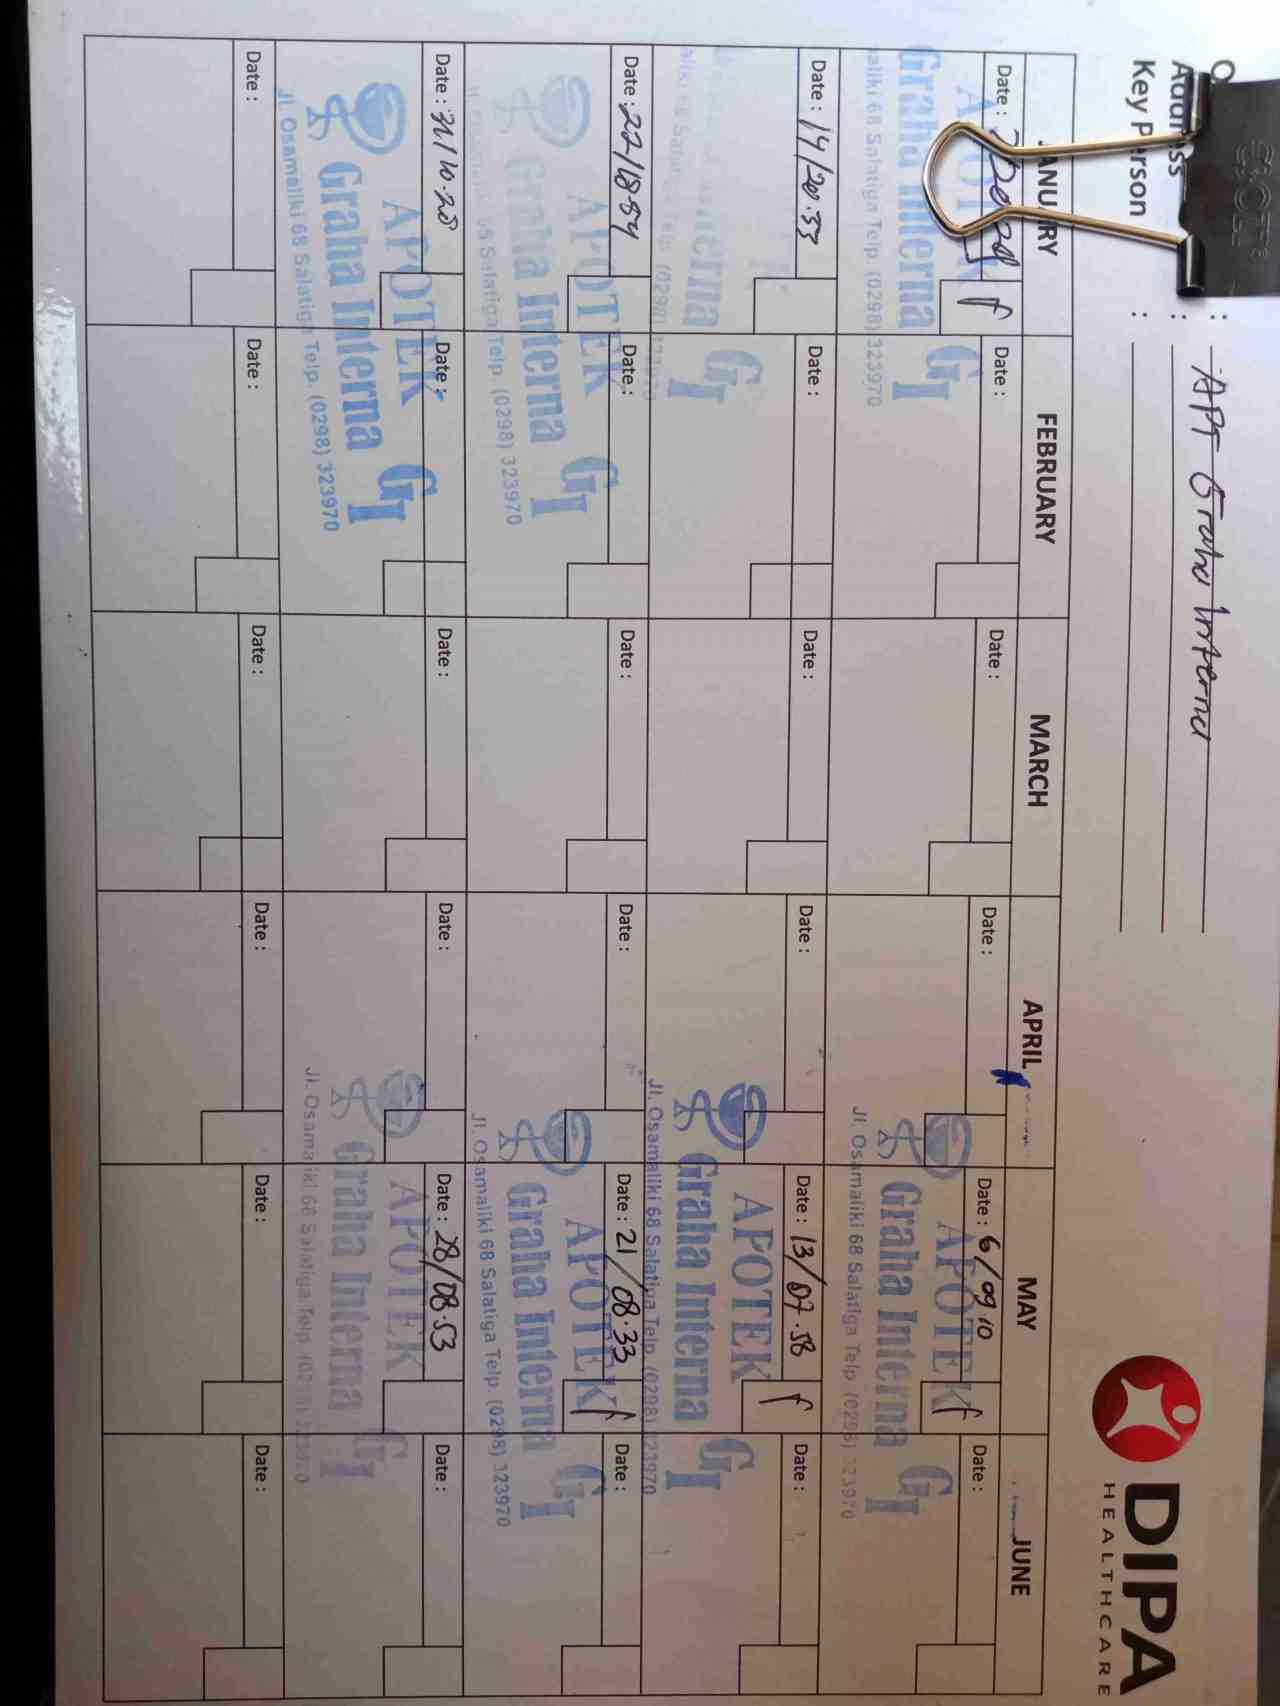 DIPA
HEALTHCARE
: APT Graha Interna
Key Person :
FEBRUARY MARCH APRIL MAY JUNE
Date : Date : Date : Date : Date : 6/09.10 Date :
APOTEK
Graha Interna GI
Salatiga Telp. (0298) 323970
APOTEK
Graha Interna GI
Jl. Osamaliki 68 Salatiga Telp. (0298) 323970
Date : 14/20.33 Date : Date : Date : Date : 13/07.58 Date :
APOTEK
Graha Interna GI
Jl. Osamaliki 68 Salatiga Telp. (0298) 323970
Date : 22/18.54 Date : Date : Date : Date : 21/08.33 Date :
APOTEK
Graha Interna GI
68 Salatiga Telp. (0298) 323970
APOTEK
Graha Interna GI
Jl. Osamaliki 68 Salatiga Telp. (0298) 323970
Date : 31/10.20 Date : Date : Date : Date : 28/08.53 Date :
APOTEK
Graha Interna GI
Jl. Osamaliki 68 Salatiga Telp. (0298) 323970
APOTEK
Graha Interna GI
Jl. Osamaliki 68 Salatiga Telp. (0298) 323970
Date : Date : Date : Date : Date : Date :